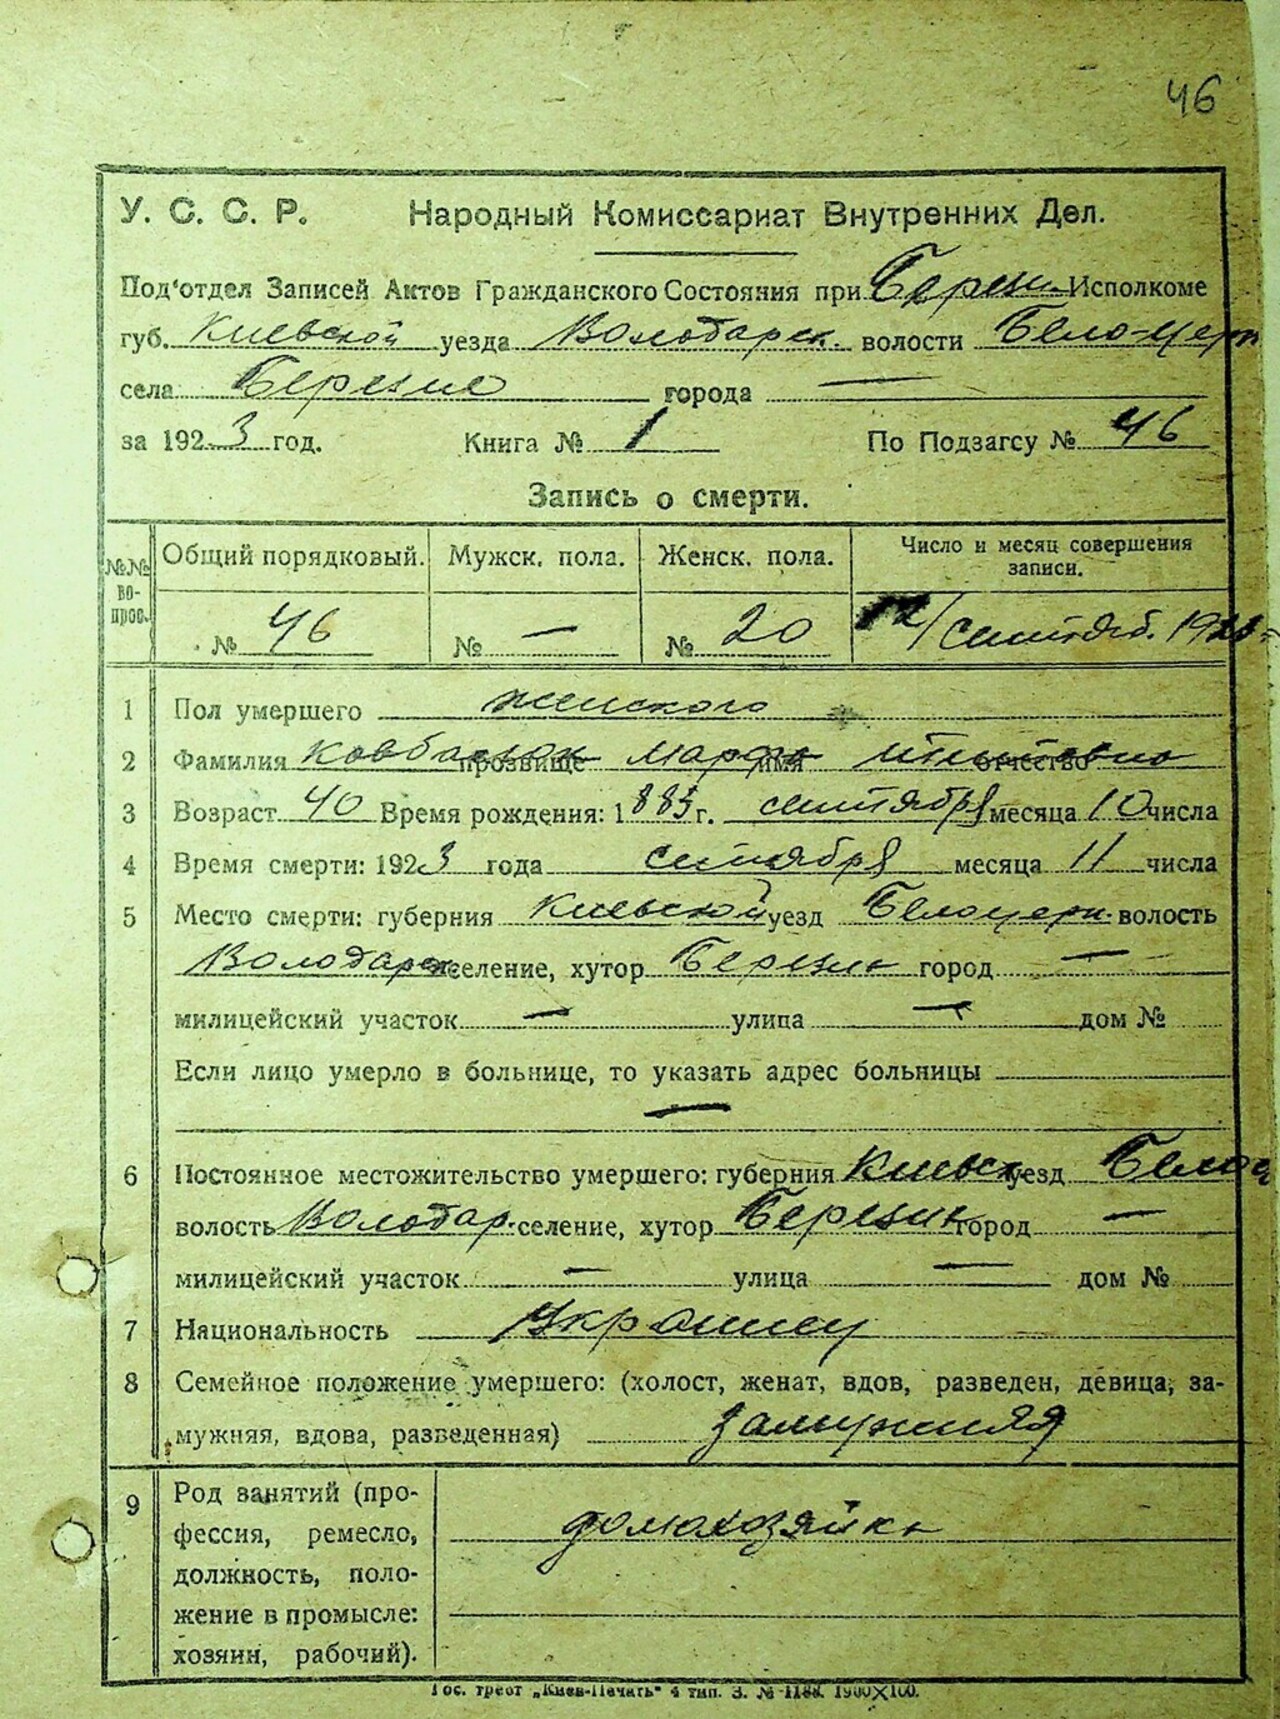 46
У. С. С. Р. Народный Комиссариат Внутренних Дел.
Под'отдел Записей Актов Гражданского Состояния при Берези Исполкоме
губ. Киевской уезда Володарск. волости Бело-церк
села Березне города —
за 1923 год. Книга № 1 По Подзагсу № 46
Запись о смерти.
№№ вопрос. Общий порядковый. Мужск. пола. Женск. пола. Число и месяц совершения записи.
№ 46 № — № 20 12/сентяб. 1923
1 Пол умершего женского
2 Фамилия Ковбасюк прозвище Марфа имя отчество
3 Возраст 40 Время рождения: 1883 г. сентября месяца 10 числа
4 Время смерти: 1923 года сентября месяца 11 числа
5 Место смерти: губерния Киевской уезд Белоцерк. волость
Володарск селение, хутор Березне город —
милицейский участок — улица — дом №
Если лицо умерло в больнице, то указать адрес больницы
—
6 Постоянное местожительство умершего: губерния Киевск уезд Белоц
волость Володар. селение, хутор Березне город —
милицейский участок — улица — дом №
7 Национальность
8 Семейное положение умершего: (холост, женат, вдов, разведен, девица, за-
мужняя, вдова, разведенная) Замужняя
9 Род занятий (про-
фессия, ремесло, домохозяйка
должность, поло-
жение в промысле:
хозяин, рабочий).
Гос. трест „Киев-Печать" 4 тип. З. № 1188. 1900×100.